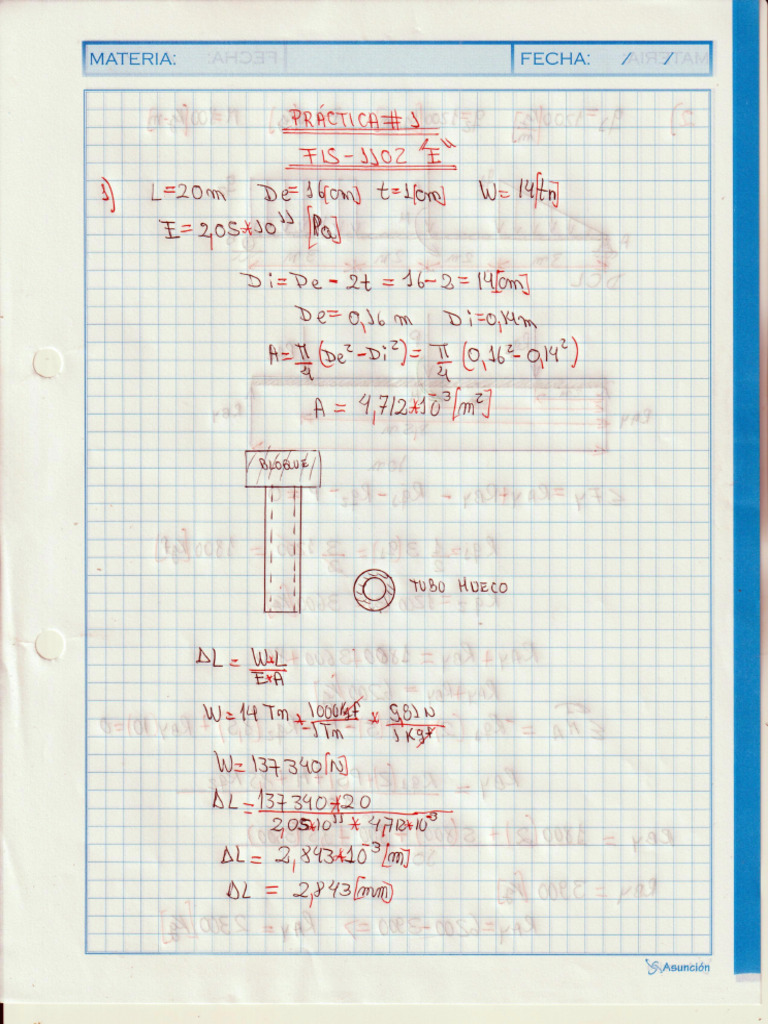 MATERIA: FECHA: / /
PRÁCTICA # 1
FIS - 1102 "E"
1) L = 20 m De = 16 [cm] t = 1 [cm] W = 14 [tn]
E = 2,05 * 10¹¹ [Pa]
Di = De - 2t = 16 - 2 = 14 [cm]
De = 0,16 m Di = 0,14 m
A = π/4 (De² - Di²) = π/4 (0,16² - 0,14²)
A = 4,712 * 10⁻³ [m²]
BLOQUE
TUBO HUECO
ΔL = W*L / E*A
W = 14 Tn * 1000 Kgf / 1 Tn * 9,81 N / 1 Kgf
W = 137 340 [N]
ΔL = 137 340 * 20 / 2,05*10¹¹ * 4,712*10⁻³
ΔL = 2,843 * 10⁻³ [m]
ΔL = 2,843 [mm]
Asunción